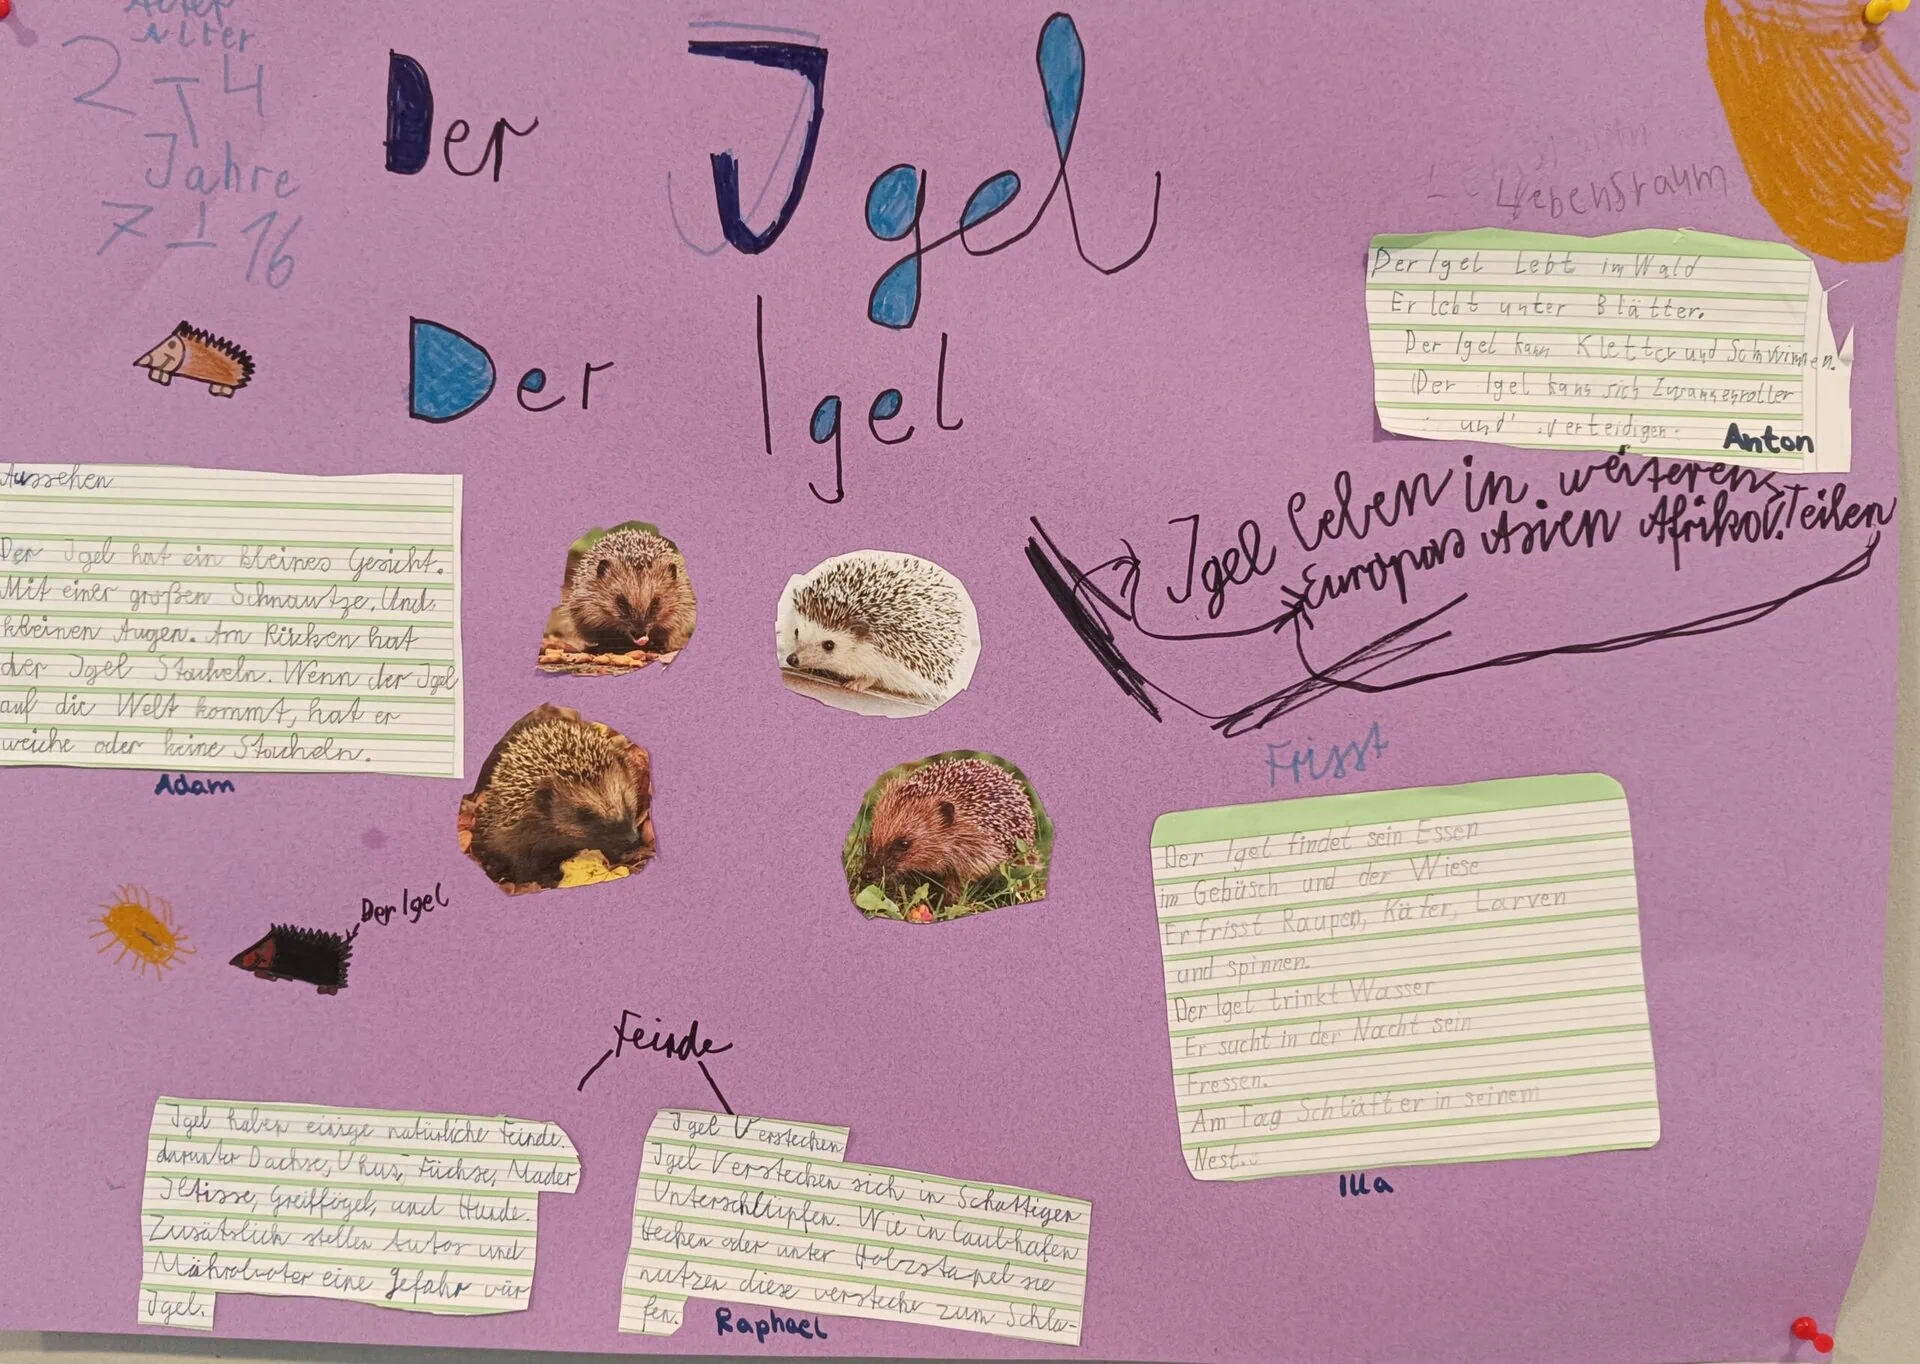 Alter
Alter
2 - 4
Jahre
7 - 16
Der Igel
Der Igel
Lebensraum
Der Igel Lebt im Wald
Er lebt unter Blätter.
Der Igel kann Kletter und Schwimmen.
Der Igel kann sich
und verteidigen.
Anton
Igel leben in weiteren Teilen
Europas Asien Afrika.
Aussehen
Der Igel hat ein kleines Gesicht.
Mit einer großen Schnautze. Und
kleinen Augen. Am Rücken hat
der Igel Stacheln. Wenn der Igel
auf die Welt kommt, hat er
weiche oder keine Stacheln.
Adam
Der Igel
Frisst
Der Igel findet sein Essen
im Gebüsch und der Wiese
Er frisst Raupen, Käfer, Larven
und spinnen.
Der Igel trinkt Wasser
Er sucht in der Nacht sein
Fressen.
Am Tag Schläft er in seinem
Nest.
Illa
Feinde
Igel haben einige natürliche Feinde.
darunter Dachse, Uhus, Füchse, Mader
Iltisse, Greiffögel, und Hunde.
Zusätzlich stellen Autos und
Mähroboter eine Gefahr vür
Igel.
Igel Verstecken
Igel Verstecken sich in Schattigen
Unterschlüpfen. Wie in Laubhafen
Hecken oder unter Holzstapel sie
nutzen diese verstecke zum Schla-
fen.
Raphael